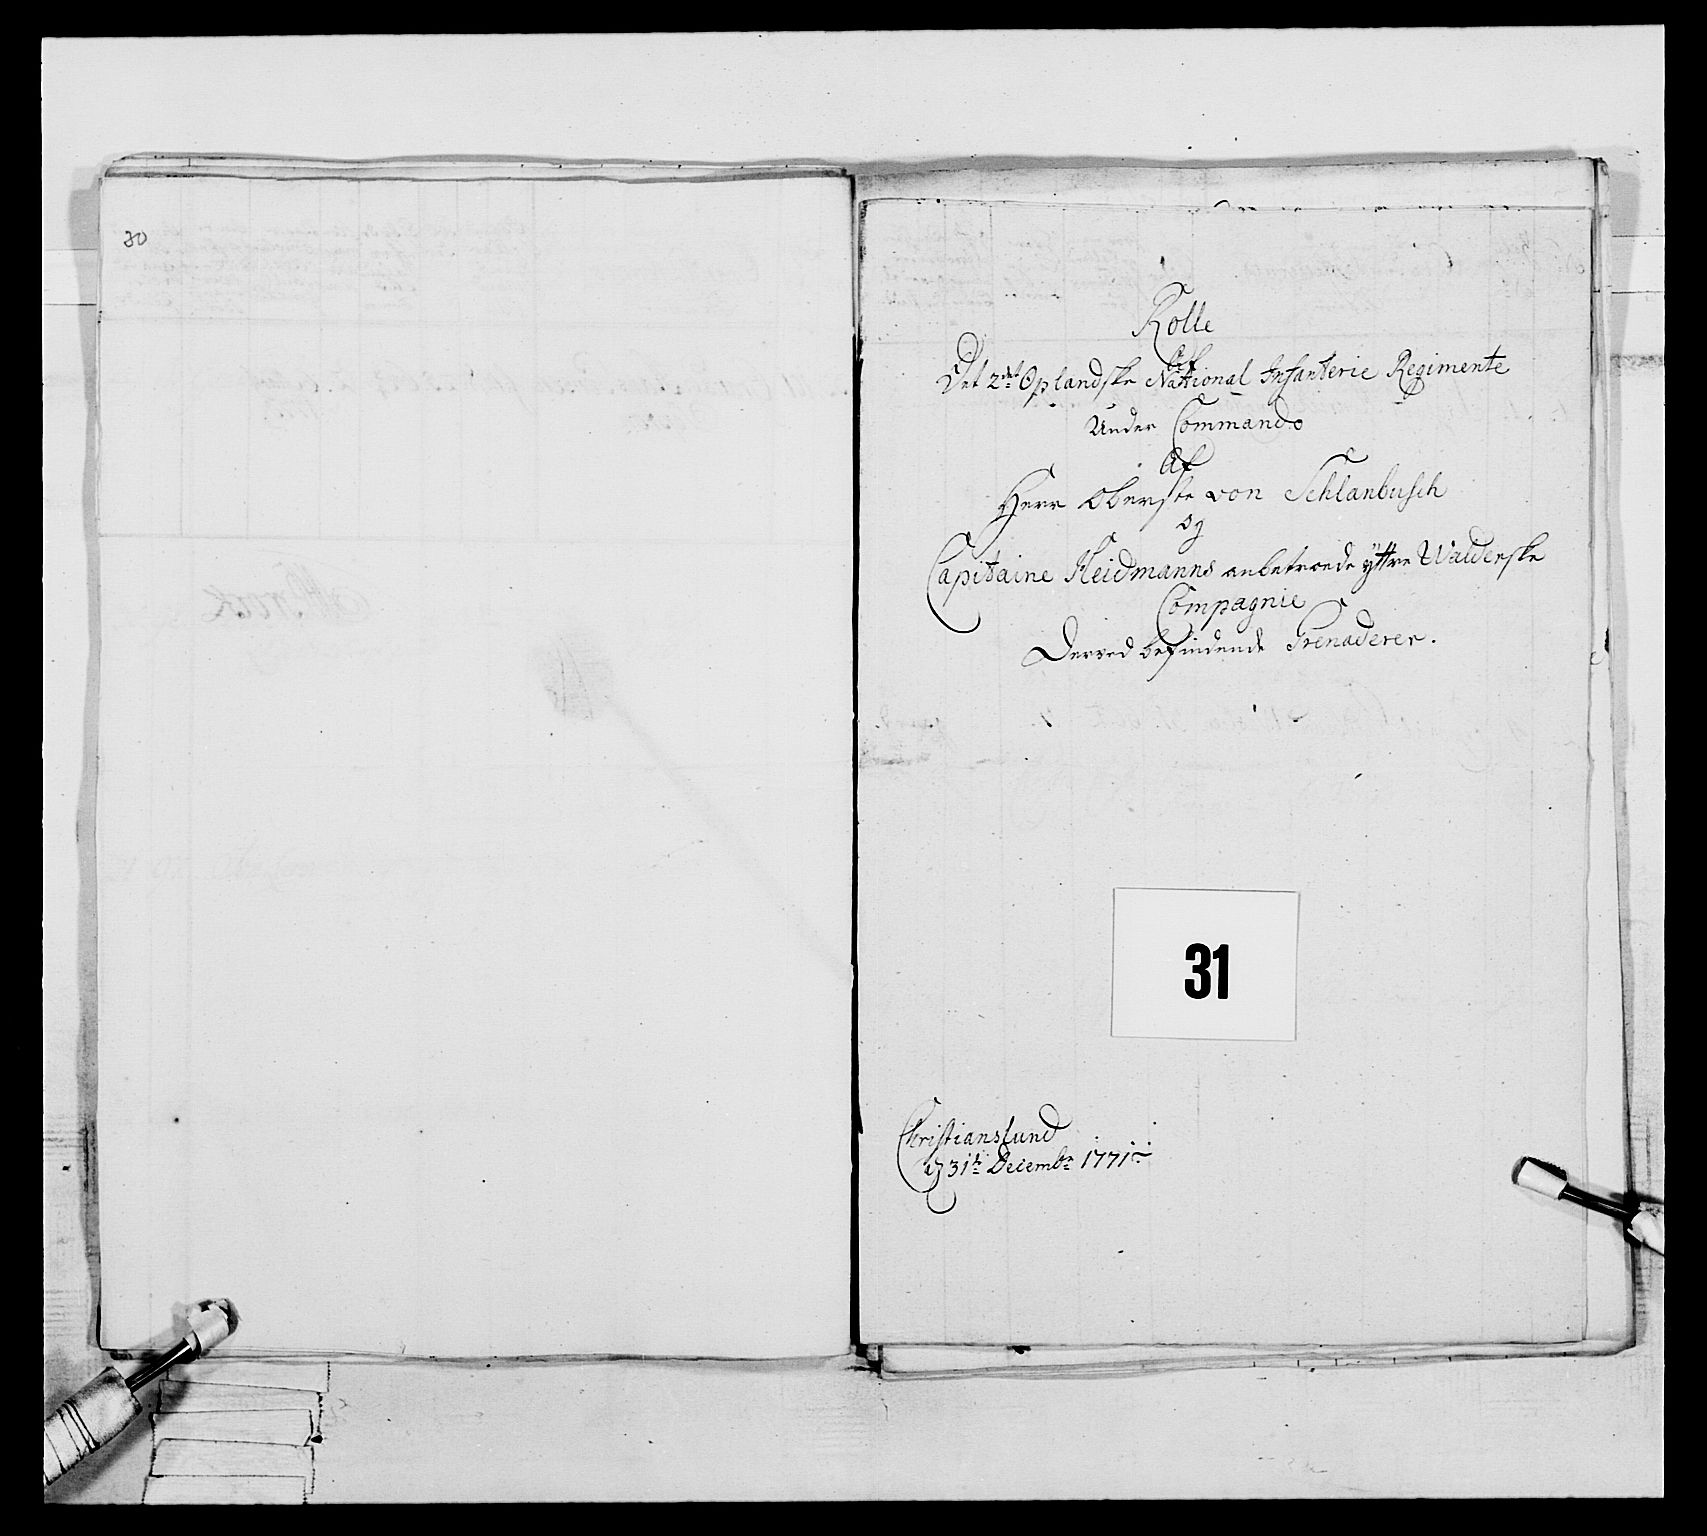 30
Rolle
Af
Det 2det Oplandske National Infanterie Regimente
Under Commando
Af
Herr Oberste von Schlanbusch
og
Capitaine Heidmanns anbetroede yttre Walderske
Compagnie
Derved befindende Grenaderer.
31
Christianslund
d 31te Decembr 1771